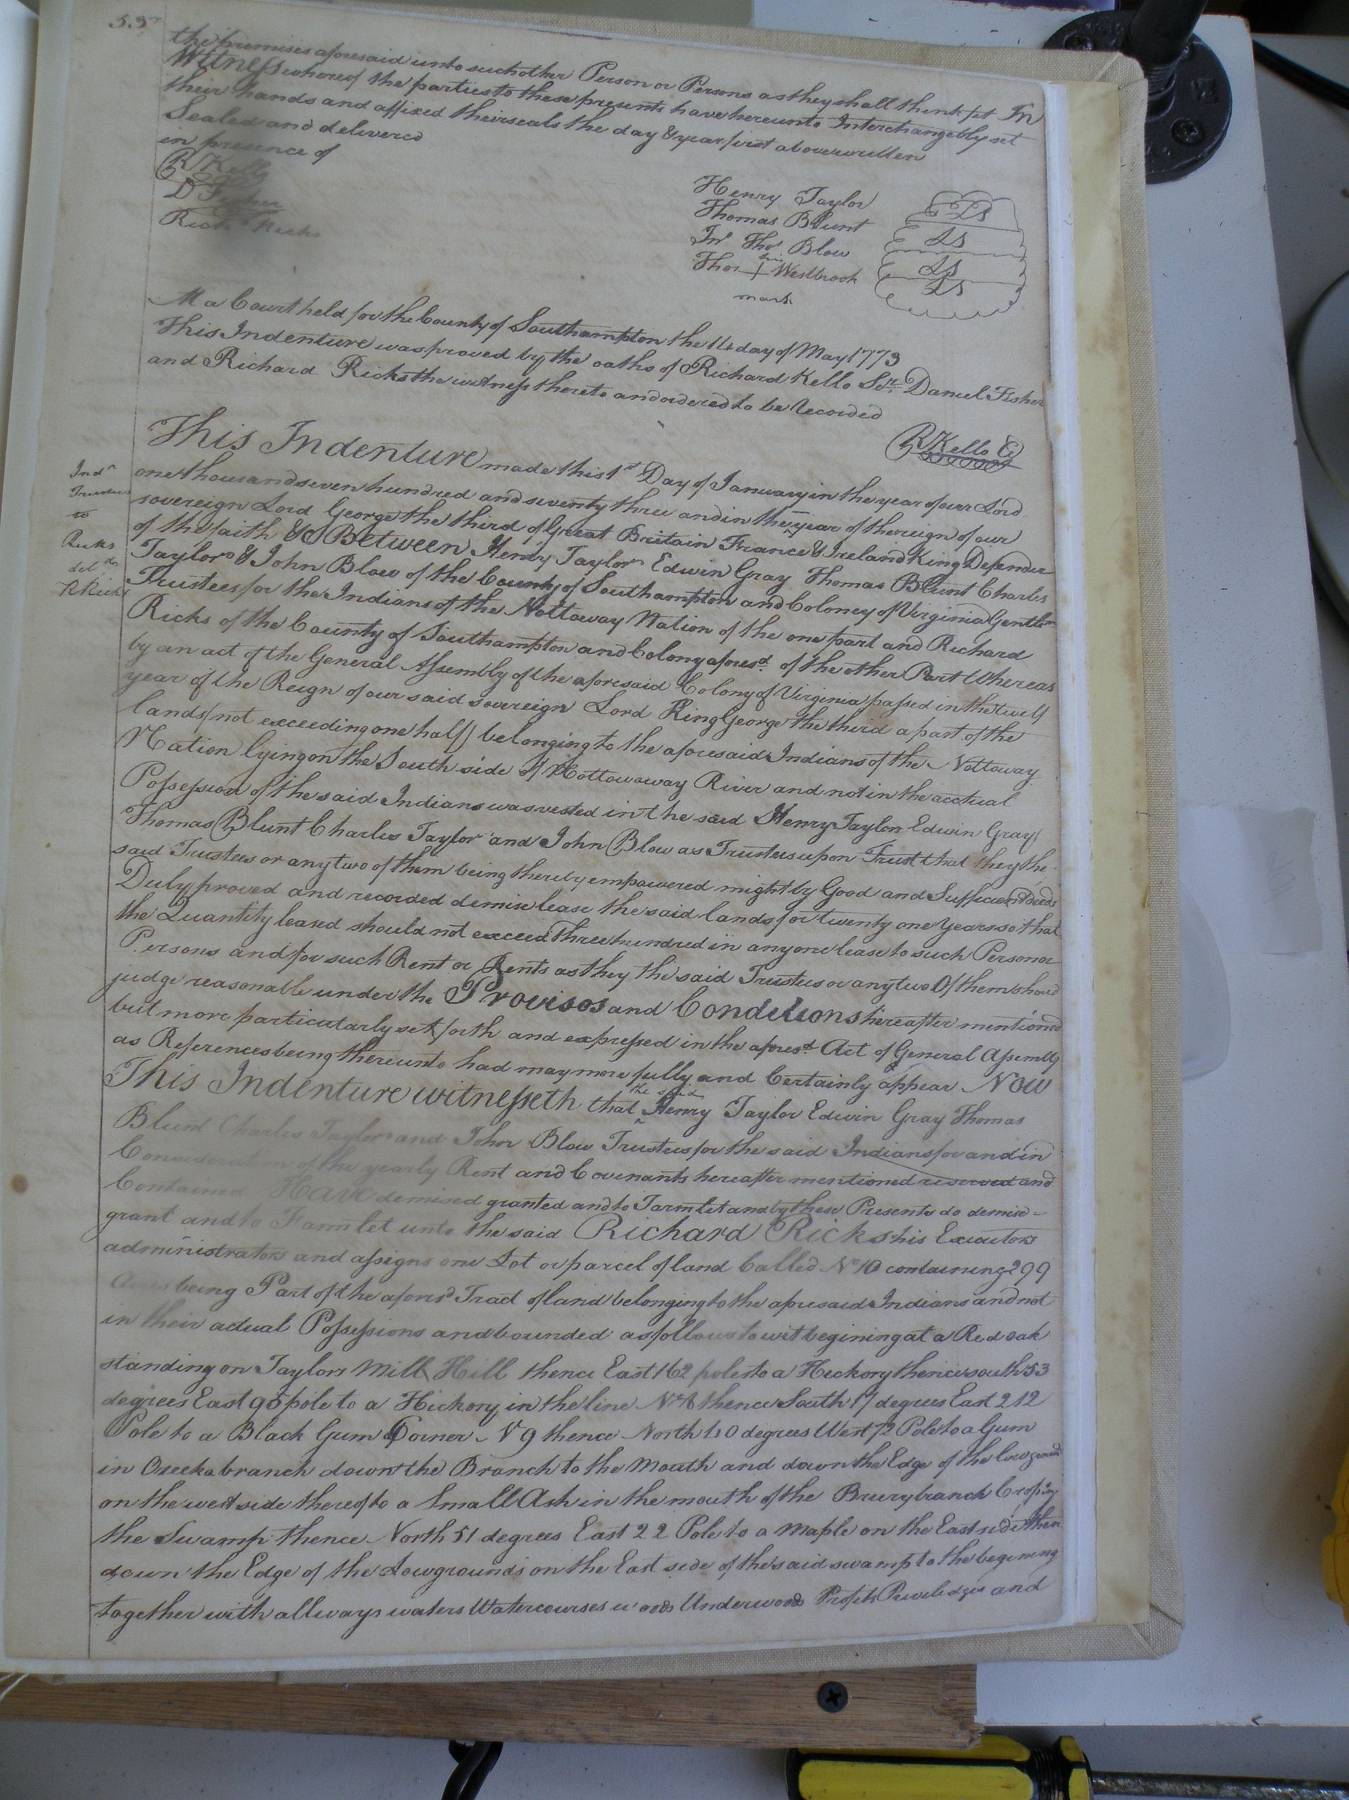 the premises aforesaid unto such other Person or Persons as they shall think fit In
Witness whereof the parties to these presents have hereunto Interchangebly set
their hands and affixed their seals the day & year first above written
Sealed and delivered
in presence of
R Kello
D Fisher
Richd Ricks
Henry Taylor LS
Thomas Blunt LS
Jno Thos Blow LS
Thos his Westbrook LS
mark
At a Court held for the County of Southampton the 14 day of May 1773
This Indenture was proved by the oaths of Richard Kello Senr Daniel Fisher
and Richard Ricks the witness thereto and ordered to be recorded
R Kello
This Indenture made this 1st Day of January in the year of our Lord
one thousand seven hundred and seventy three and in the year of the reign of our
sovereign Lord George the third of Great Britain France & Ireland King Defender
of the faith &c Between Henry Taylor Edwin Gray Thomas Blunt Charles
Taylor & John Blow of the County of Southampton and Coloney of Virginia Gentlem
Trustees for the Indians of the Nottoway Nation of the one part and Richard
Ricks of the County of Southampton and Colony aforesd of the other Part Whereas
by an act of the General Assembly of the aforesaid Colony of Virginia passed in the twelf
year of the Reign of our said sovereign Lord King George the third a part of the
lands (not exceeding one half) belonging to the aforesaid Indians of the Nottoway
Nation lying on the South side of Nottoway River and not in the acctual
Possession of the said Indians was vested in the said Henry Taylor Edwin Gray
Thomas Blunt Charles Taylor and John Blow as Trustees upon Trust that they the
said Trustees or any two of them being thereby empowered might by Good and Sufficient Deeds
Duly proved and recorded demise lease the said lands for twenty one Years so that
the Quantity leased should not exceed Three hundred in any one lease to such Person or
Persons and for such Rent or Rents as they the said Trustees or any two Of them should
judge reasonable under the Provisos and Conditions hereafter mentioned
but more particularly set forth and expressed in the aforesd Act of General Assembly
as References being thereunto had may more fully and Certainly appear Now
This Indenture witnesseth that the said Henry Taylor Edwin Gray Thomas
Blunt Charles Taylor and John Blow Trustees for the said Indians for and in
Consideration of the yearly Rent and Covenants hereafter mentioned reserved and
Contained Have demised granted and to Farm let and by these Presents do demise
grant and to Farm let unto the said Richard Ricks his Executors
administrators and assigns one Lot or parcel of land Called No 10 containing 299
Acres being Part of the aforesd Tract of land belonging to the aforesaid Indians and not
in their actual Possessions and bounded as follows to wit begining at a Red oak
standing on Taylors Mill Hill thence East 162 poles to a Hickory thence south 53
degrees East 95 pole to a Hickory in the line thence South 17 degrees East 212
Pole to a Black Gum Corner N 9 thence North degrees West 72 Pole to a Gum
in branch down the Branch to the Mouth and down the Edge of the low ground
on the west side thereof to a Small Ash in the mouth of the branch Crossing
the Swamp thence North 51 degrees East 22 Pole to a Maple on the East side then
down the Edge of the Lowgrounds on the East side of the said swamp to the begining
together with all ways waters Watercourses woods Underwoods Profits Priviledges and
Indn
Trustees
to
Ricks